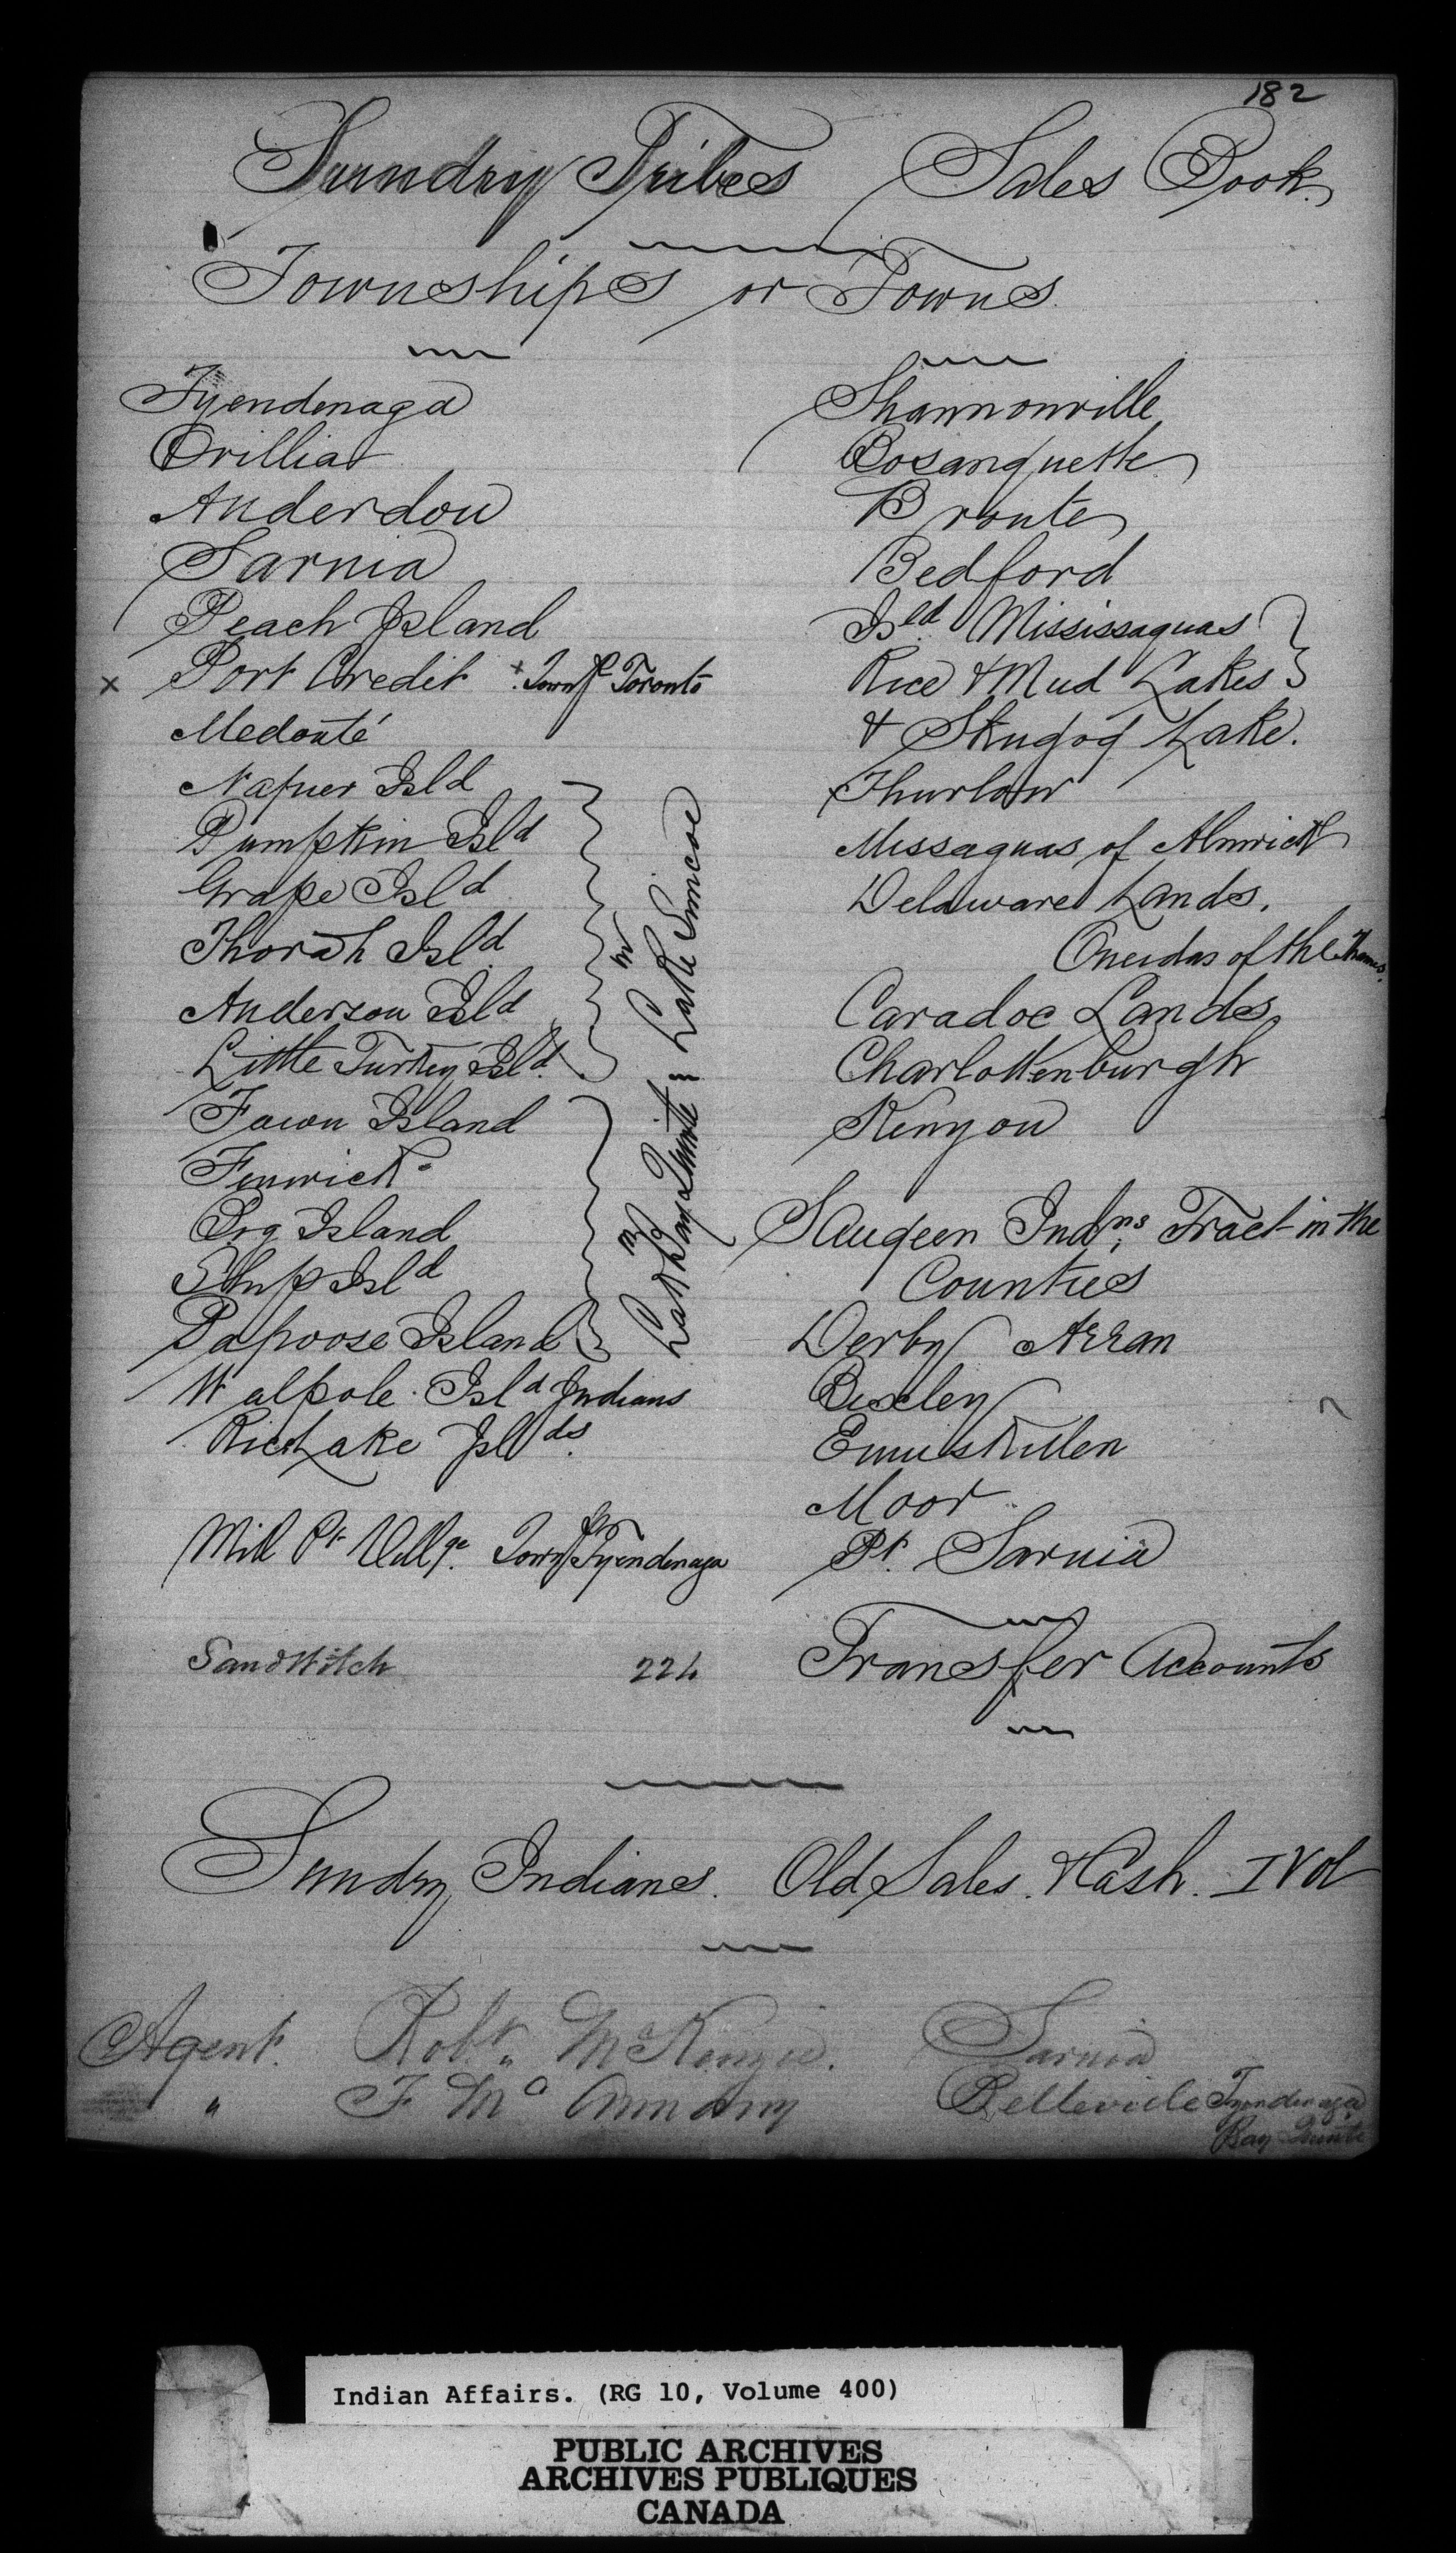 182
Sundry Tribes Sales Book
Townships or Towns
Tyendenaga
Orillia
Anderdon
Sarnia
Peach Island
x Port Credit x Townp Toronto
Medonté
Napier Isld
Pumpkin Isld
Grape Isld
Thorah Isld
Anderson Isld
Little Turkey Isld
in Lake Simcoe
Fawn Island
Fenwick "
Hog Island
Ship Isld
Papoose Island
in Bay Quinté
Walpole Isld Indians
Rice Lake Islds
Mill Pt Villge Townp Tyendenaga
Sandwitch 224
Shannonville
Bosanquette
Bronte
Bedford
Isld Mississaguas
Rice & Mud Lakes
& Skugog Lake.
Thurlow
Missaguas of Alnwick
Delaware Lands.
Oneidas of the Thames.
Caradoc Lands
Charlottenburgh
Kenyon
Saugeen Indns Tract in the
Counties
Derby Arran
Bexley
Enniskillen
Moor
Pt. Sarnia
Transfer Accounts
Sundry Indians. Old Sales. & Cash. 1 Vol
Agent. Robt. McKenzie. Sarnia
" Belleville Tyendenaga
Bay Quinté
Indian Affairs. (RG 10, Volume 400)
PUBLIC ARCHIVES
ARCHIVES PUBLIQUES
CANADA